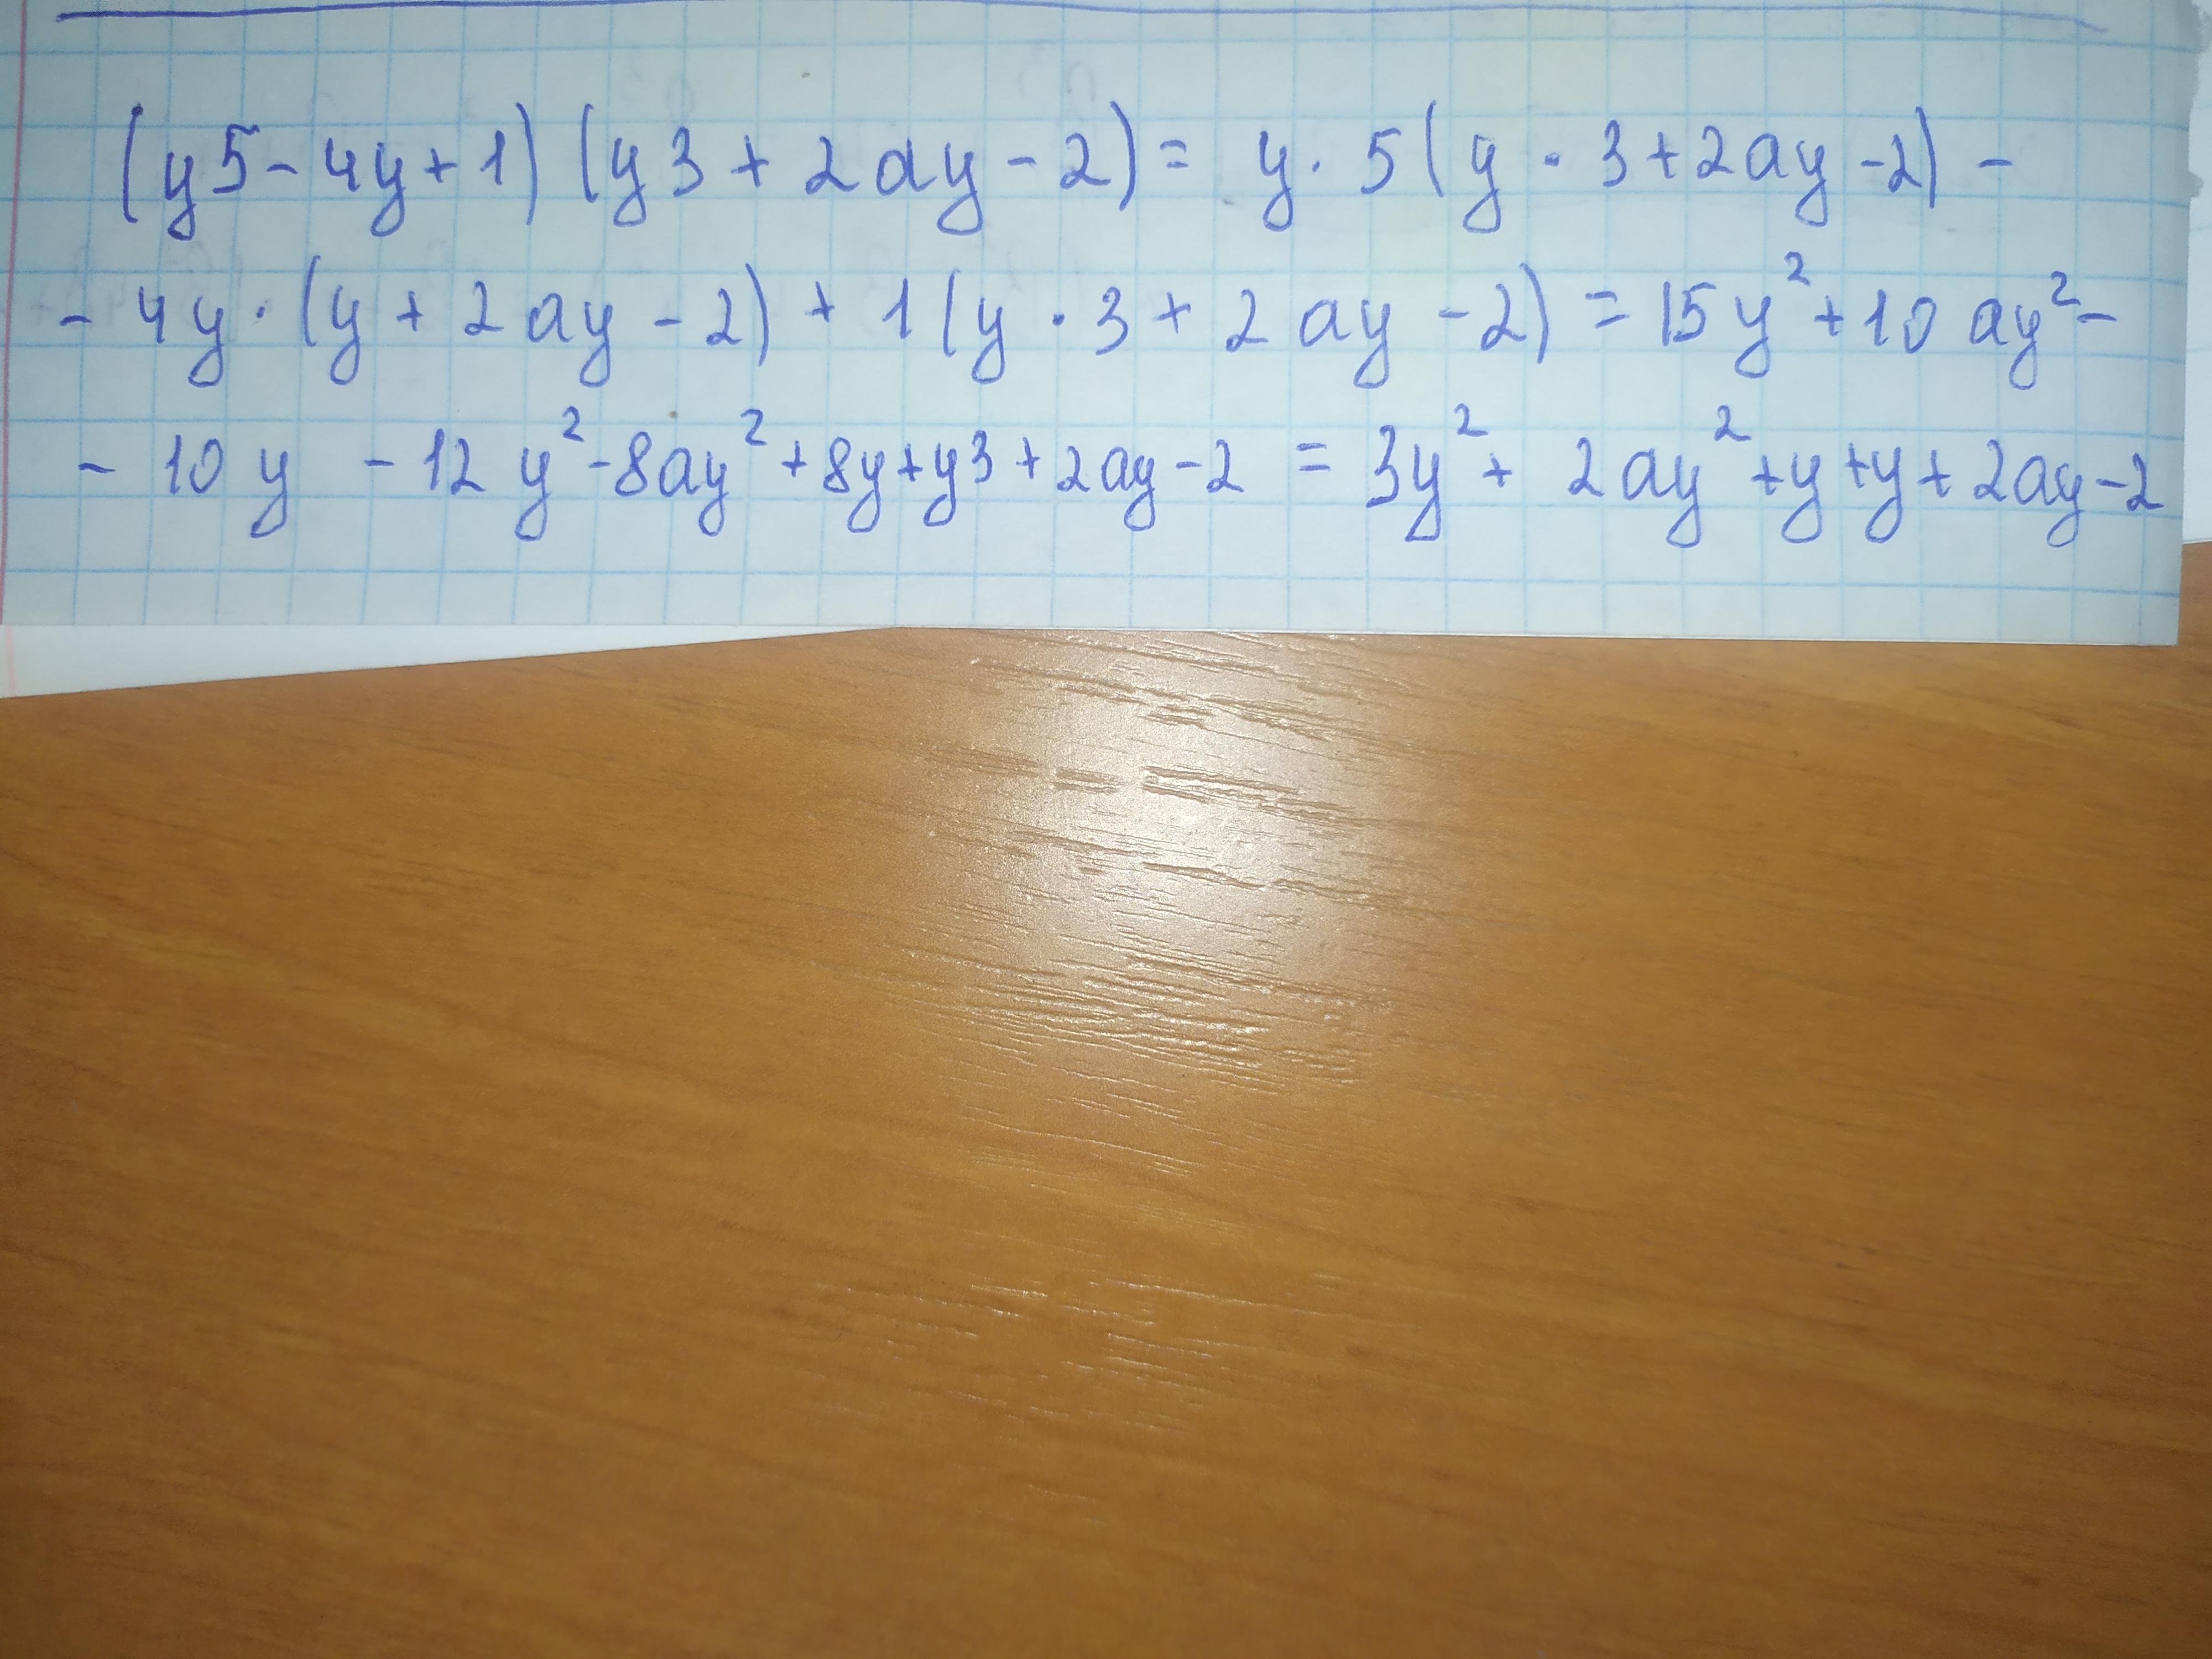 (y5-4y+1)(y3+2ay-2)= y·5(y·3+2ay-2)-
-4y·(y+2ay-2)+1(y·3+2ay-2)=15y²+10ay²-
-10y -12y²-8ay²+8y+y3+2ay-2=3y²+2ay²+y+y+2ay-2